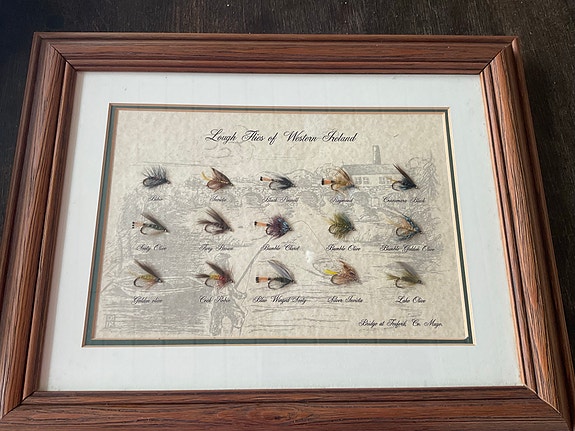 Lough Flies of Western Ireland
Bibio Invicta Black Pennell Raymond Connemara Black
Sooty Olive Fiery Brown Bumble Claret Bumble Olive Bumble Golden Olive
Golden Olive Cock Robin Blue Winged Teely Silver Invicta Lake Olive
Bridge at Foxford, Co. Mayo.